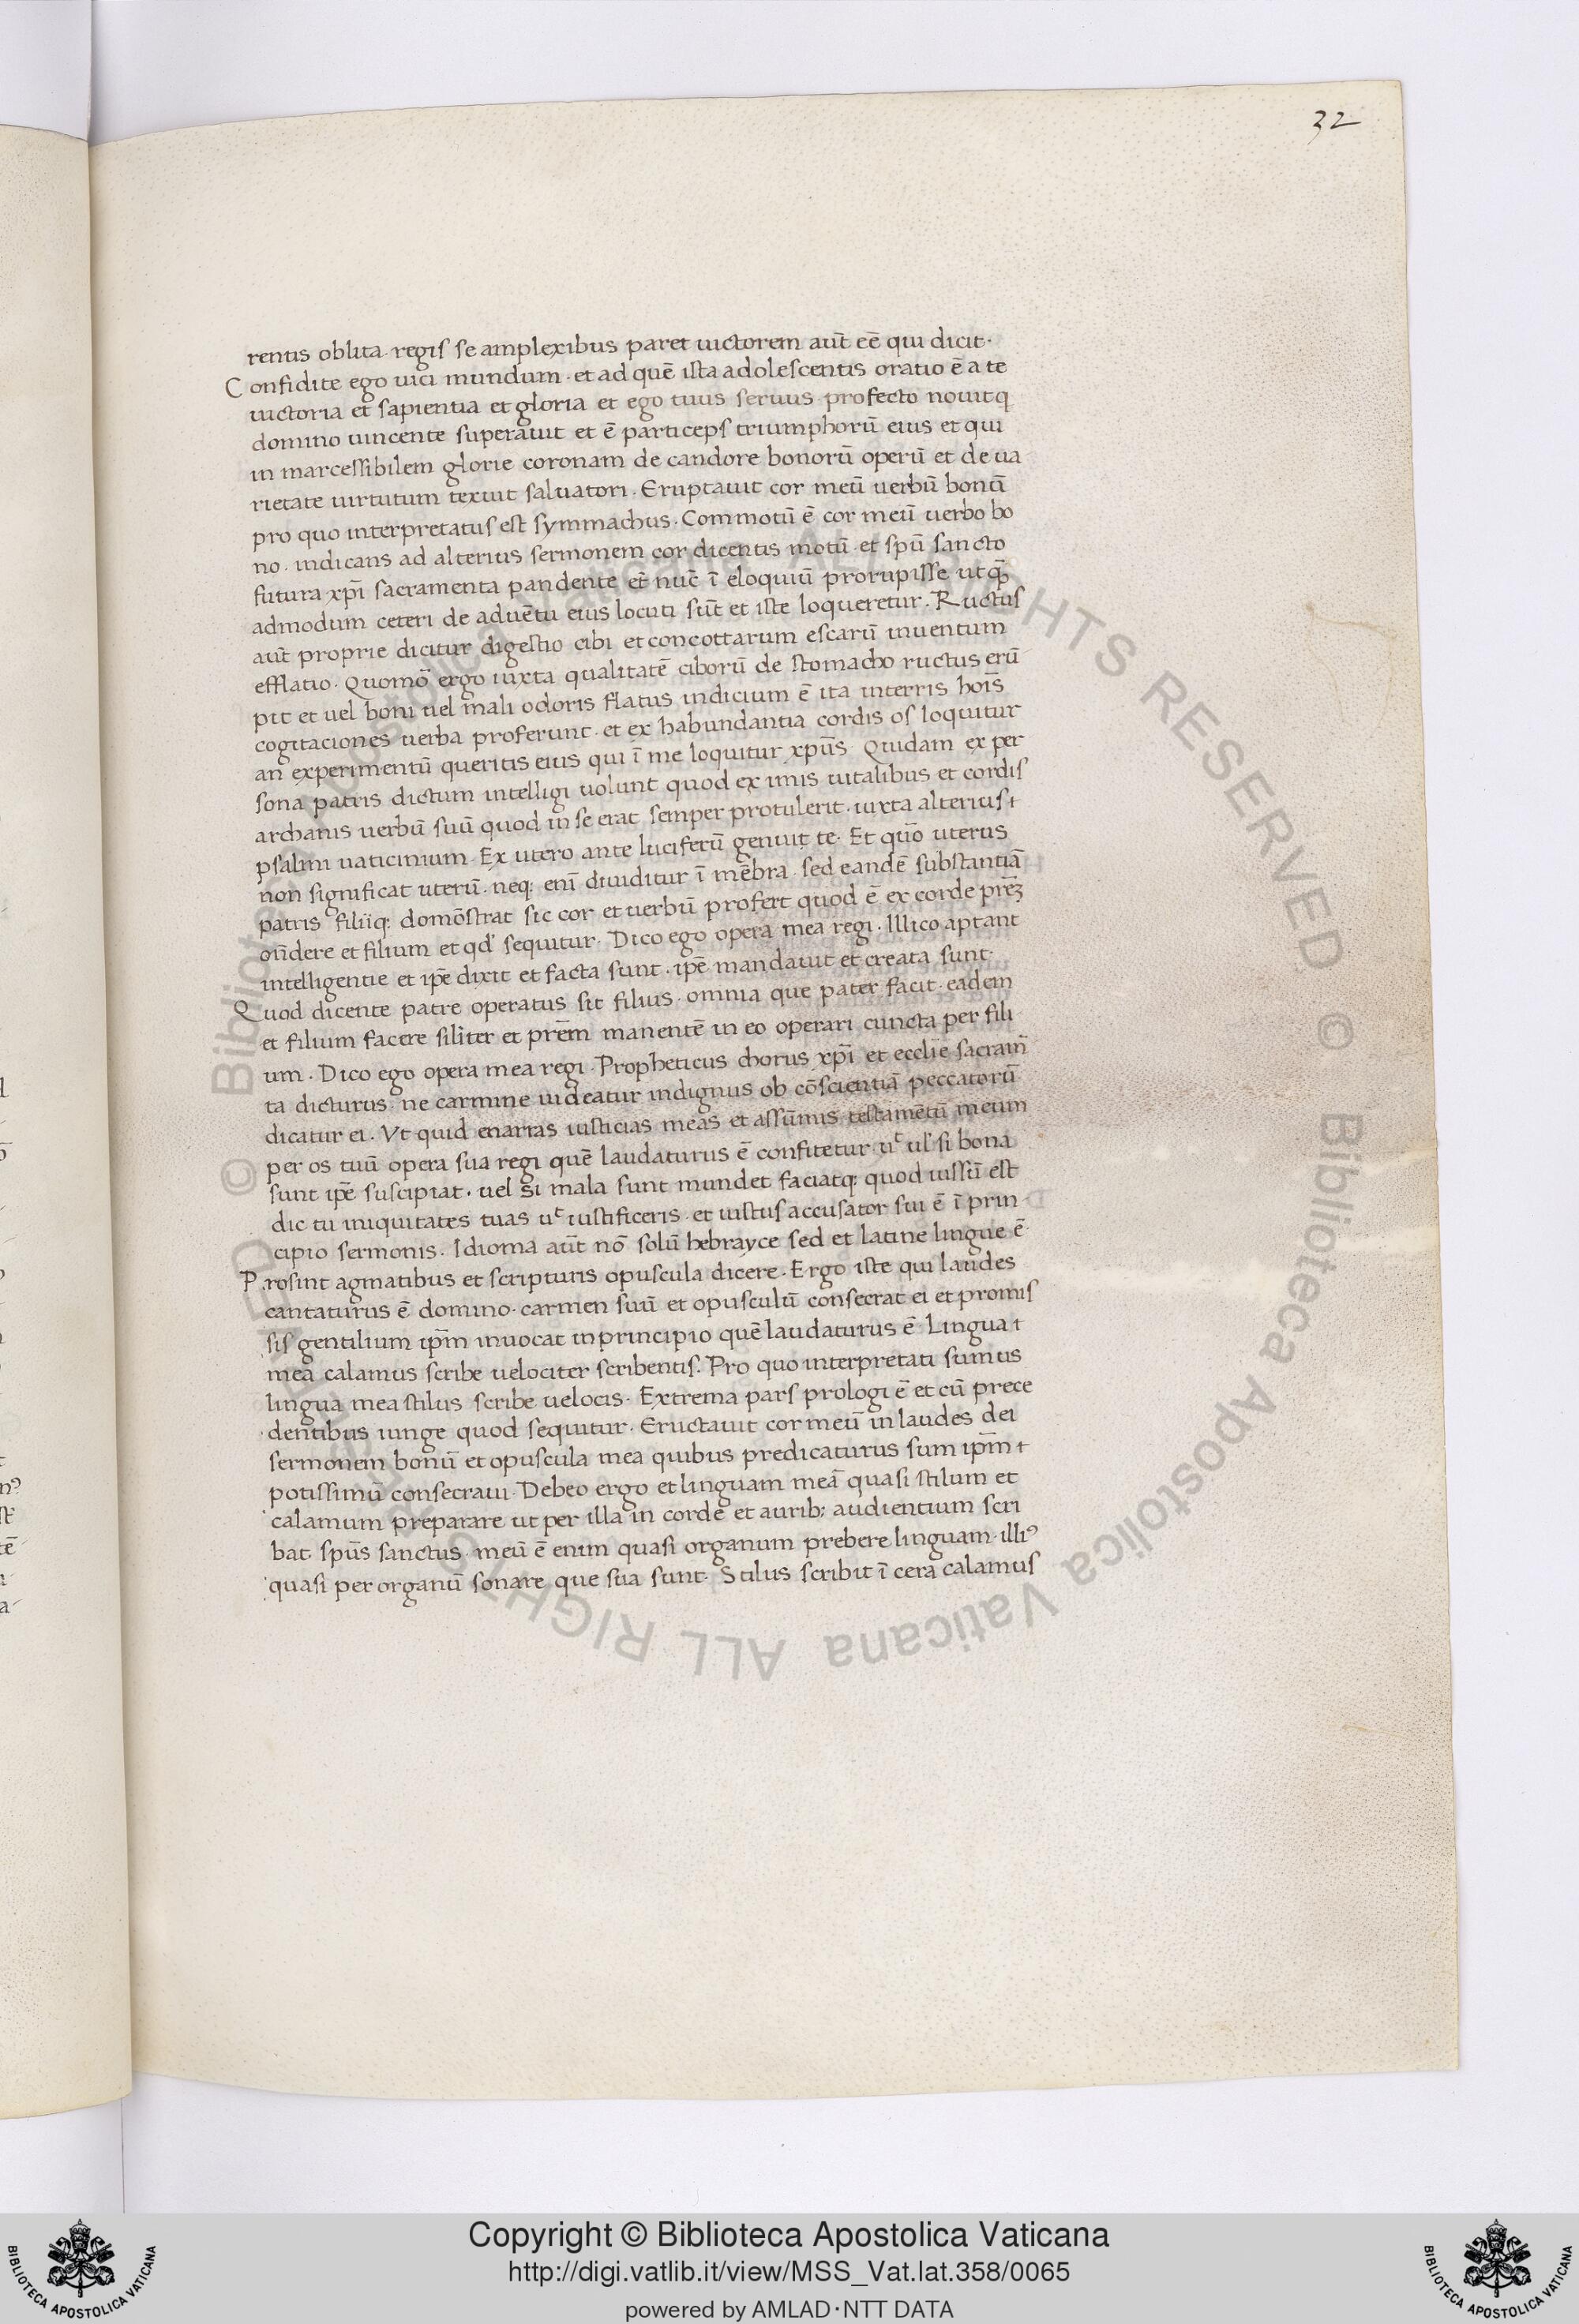 32
rentis oblita. regis se amplexibus paret uictorem aut̄ eē qui dicit.
Confidite ego uici mundum. et ad quē ista adolescentis oratio ē a te
uictoria et sapientia et gloria et ego tuus seruus profecto nouit q
domino uincente superauit et ē particeps triumphorū eius et qui
in marcessibilem glorie coronam de candore bonorū operū et de ua
rietate uirtutum texuit saluatori. Eruptauit cor meū uerbū bonū
pro quo interpretatus est symmachus. Commotū ē cor meū uerbo bo
no. indicans ad alterius sermonem cor dicentis motū. et spū sancto
futura xpī sacramenta pandente et nūc ī eloquiū prorupisse ut q̄
admodum ceteri de aduētu eius locuti sūt et iste loqueretur. Ructus
aut̄ proprie dicitur digestio cibi et concottarum escarū inuentum
efflatio. Quomō ergo iuxta qualitatē ciborū de stomacho ructus erū
pit et uel boni uel mali odoris flatus indicium ē ita interris hoīs
cogitaciones uerba proferunt. et ex habundantia cordis os loquitur
an experimentū queritis eius qui ī me loquitur xpūs. Quidam ex per
sona patris dictum intelligi uolunt quod ex imis uitalibus et cordis
archanis uerbū suū quod in se erat semper protulerit. iuxta alterius
psalmi uaticinium. Ex utero ante luciferū genuit te. Et quō uterus
non significat uterū. neq; enī diuiditur ī mēbra. sed eandē substantiā
patris filiiq; domōstrat sic cor et uerbū profert quod ē ex corde prēz
on̄dere et filium et qd' sequitur. Dico ego opera mea regi. Illico aptant
intelligentie et ip̄e dixit et facta sunt. ip̄e mandauit et creata sunt.
Quod dicente patre operatus sit filius. omnia que pater facit. eadem
et filium facere silīter et prēm manentē in eo operari cuncta per fili
um. Dico ego opera mea regi. Propheticus chorus xpī et ecclīe sacram̄
ta dicturus. ne carmine uideatur indignus ob cōscientiā peccatorū
dicatur ei. Vt quid enarras iusticias meas et assūmis testamētū meum
per os tuū opera sua regi quē laudaturus ē confitetur. ut ul' si bona
sunt ip̄e suscipiat. uel si mala sunt mundet faciatq; quod iussū est
dic tu iniquitates tuas ut iustificeris. et iustus accusator sui ē ī prin
cipio sermonis. Idioma aut̄ nō solū hebrayce sed et latine lingue ē.
Prosint agmatibus et scripturis opuscula dicere. Ergo iste qui laudes
cantaturus ē domino. carmen suū et opusculū consecrat ei et promis
sis gentilium ip̄m inuocat in principio quē laudaturus ē. Lingua
mea calamus scribe uelociter scribentis. Pro quo interpretati sumus
lingua mea stilus scribe uelocis. Extrema pars prologi ē et cū prece
dentibus iunge quod sequitur. Eructauit cor meū in laudes dei
sermonem bonū et opuscula mea quibus predicaturus sum ip̄m
potissimū consecraui. Debeo ergo et linguam meā quasi stilum et
calamum preparare ut per illa in corde et aurib; audientium scri
bat spūs sanctus. meū ē enim quasi organum prebere linguam. illi⁹
quasi per organū sonare que sua sunt. Stilus scribit ī cera calamus
© Biblioteca Apostolica Vaticana ALL RIGHTS RESERVED
© Biblioteca Apostolica Vaticana ALL RIGHTS RESERVED
Copyright © Biblioteca Apostolica Vaticana
http://digi.vatlib.it/view/MSS_Vat.lat.358/0065
powered by AMLAD·NTT DATA
BIBLIOTECA APOSTOLICA VATICANA
BIBLIOTECA APOSTOLICA VATICANA